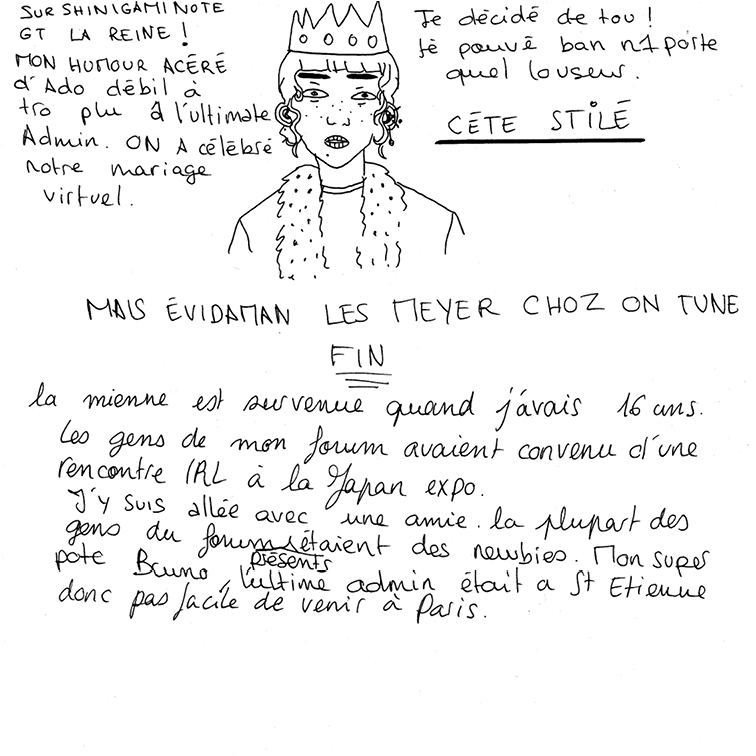 SUR SHINIGAMI NOTE
GT LA REINE !
MON HUMOUR ACÉRÉ
d'Ado débil à
tro plu à l'ultimate
Admin. ON A célébré
notre mariage
virtuel.
Je décidé de tou !
Jé pouvé ban n1porte
quel louseur.
CÉTÉ STILÉ
MAIS ÉVIDAMAN LES MEYER CHOZ ON TUNE
FIN
la mienne est survenue quand j'avais 16 ans.
Les gens de mon forum avaient convenu d'une
rencontre IRL à la Japan expo.
J'y suis allée avec une amie. la plupart des
gens du forum présents étaient des newbies. Mon super
pote Bruno, l'ultime admin était a St Etienne
donc pas facile de venir à Paris.